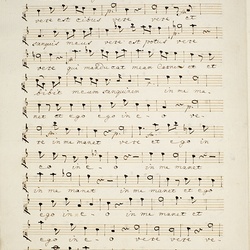 vere est cibus vere vere et
sanguis meus vere est potus vere
vere qui manducat meam Carnem et et
bibet meum sanguinem in me
manet et ego ego in e - o ve-
te in me manet vere et ego in
e - o in me manet
in me manet in me manet et ego
ego in e - o in me manet et
ego in e - o vere vere ve-